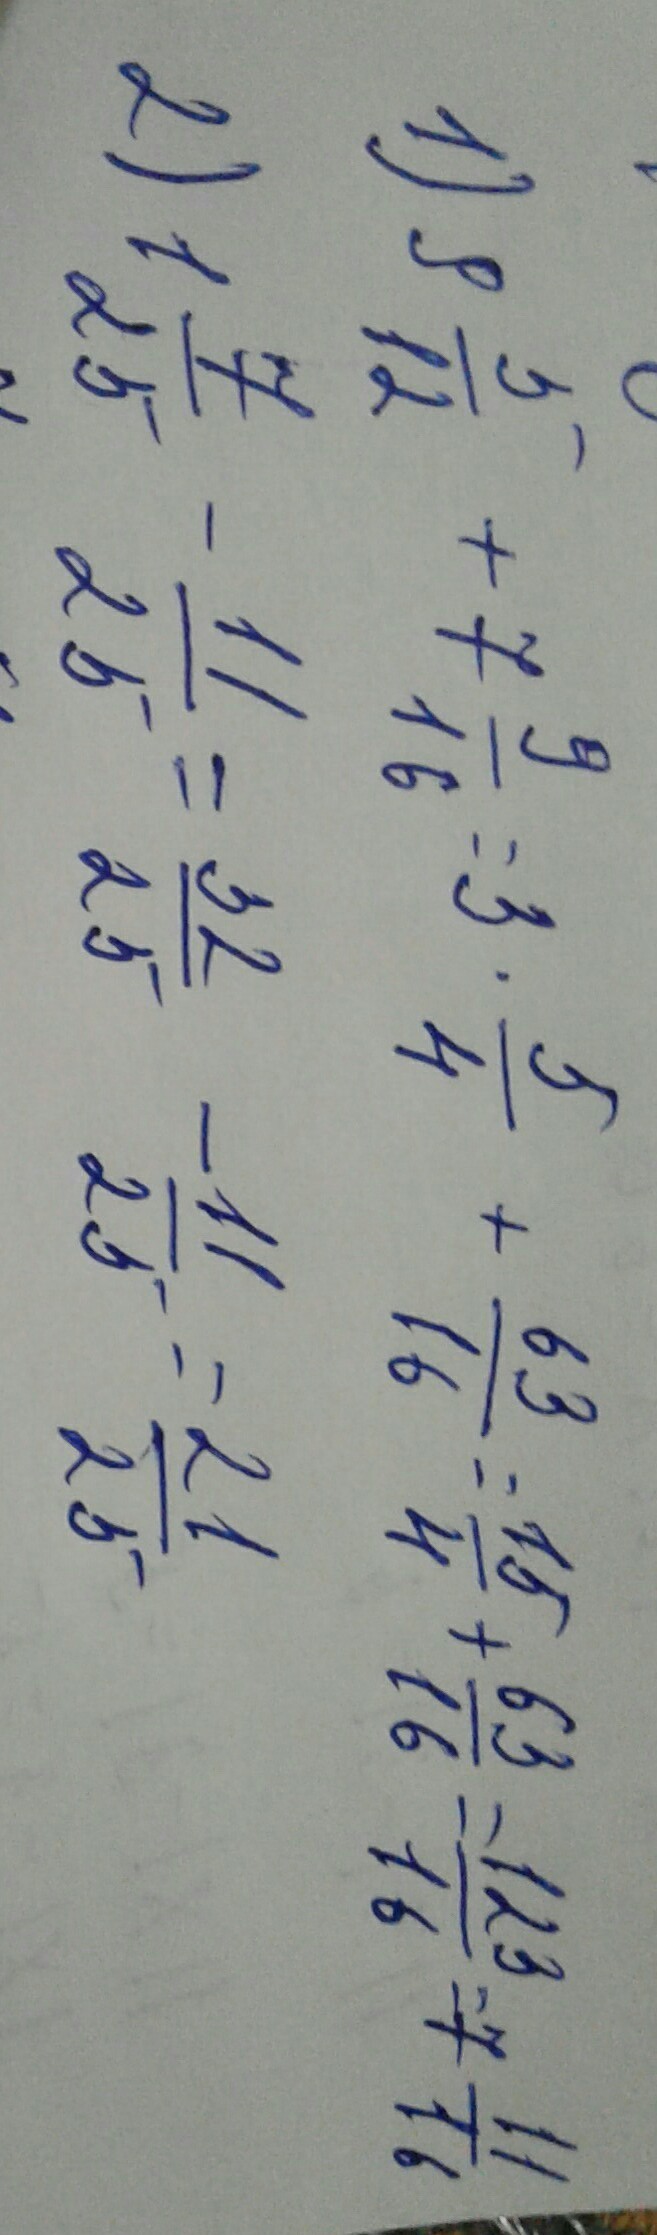 1) 9 5/12 + 7 9/16 = 3 · 5/4 + 63/16 = 15/4 + 63/16 = 123/16 = 7 11/16
2) 1 7/25 - 11/25 = 32/25 - 11/25 = 21/25